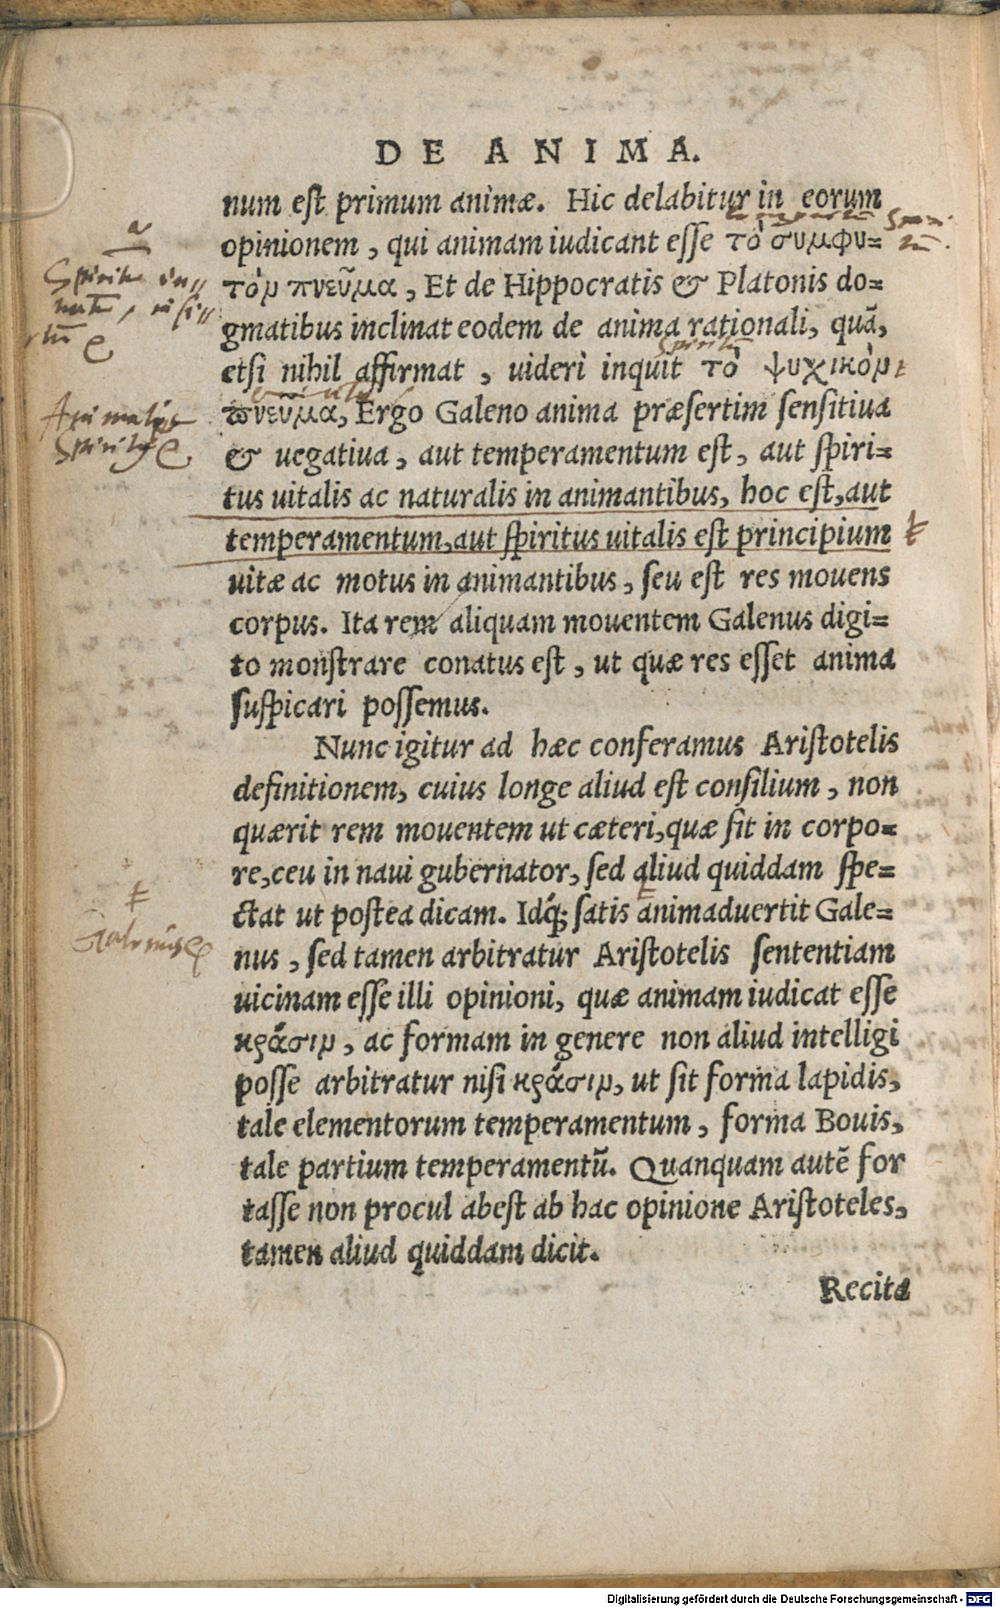 DE ANIMA.
num est primum animæ. Hic delabitur in eorum
opinionem, qui animam iudicant esse τὸ συμφυ=
τὸν πνεῦμα, Et de Hippocratis & Platonis do=
gmatibus inclinat eodem de anima rationali, quā,
etsi nihil affirmat, uideri inquit τὸ ψυχικὸν
πνεῦμα, Ergo Galeno anima præsertim sensitiua
& uegatiua, aut temperamentum est, aut spiri=
tus uitalis ac naturalis in animantibus, hoc est, aut
temperamentum, aut spiritus uitalis est principium
uitæ ac motus in animantibus, seu est res mouens
corpus. Ita rem aliquam mouentem Galenus digi=
to monstrare conatus est, ut quæ res esset anima
suspicari possemus.
Nunc igitur ad hæc conferamus Aristotelis
definitionem, cuius longe aliud est consilium, non
quærit rem mouentem ut cæteri, quæ sit in corpo=
re, ceu in naui gubernator, sed aliud quiddam spe=
ctat ut postea dicam. Idq́; satis animaduertit Gale=
nus, sed tamen arbitratur Aristotelis sententiam
uicinam esse illi opinioni, quæ animam iudicat esse
κρᾶσιν, ac formam in genere non aliud intelligi
posse arbitratur nisi κρᾶσιν, ut sit forma lapidis,
tale elementorum temperamentum, forma Bouis,
tale partium temperamentū. Quanquam autē for
tasse non procul abest ab hac opinione Aristoteles,
tamen aliud quiddam dicit.
Recita
Animalis
Spiritus
Galenus
Digitalisierung gefördert durch die Deutsche Forschungsgemeinschaft - DFG